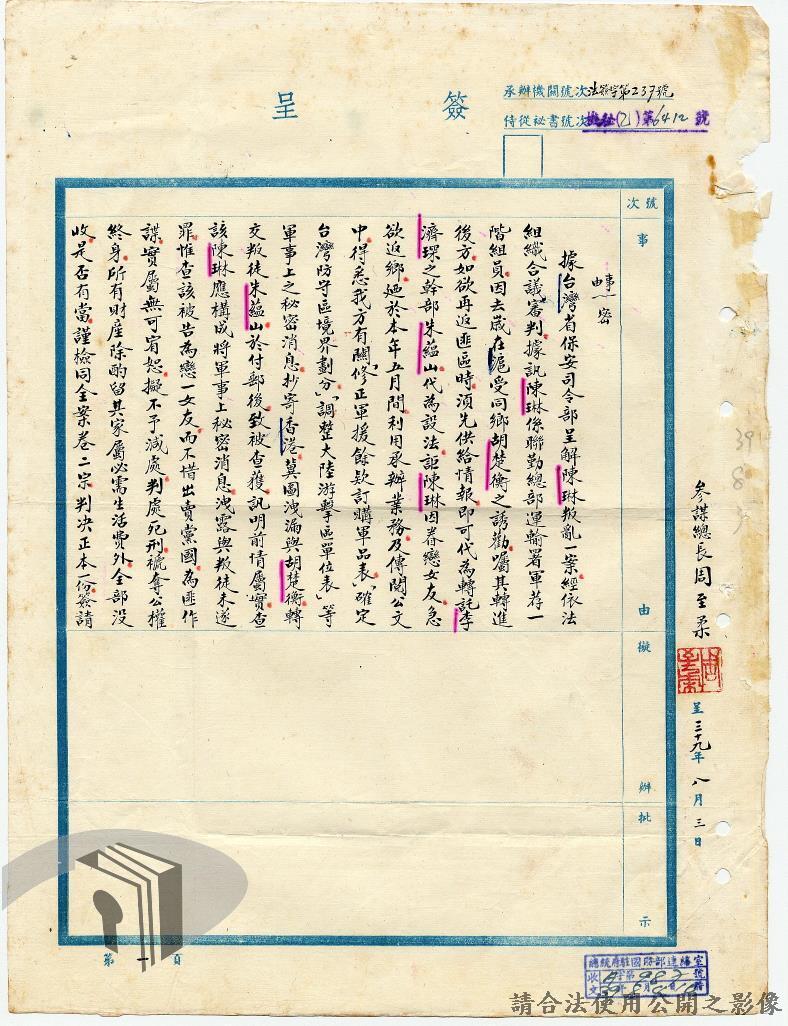 簽呈
承辦機關號次法簽字第237號
侍從祕書號次機秘(乙)第6412號
參謀總長周至柔
呈三十九年八月三日
號次
事由
擬辦
批示
事由 密
據台灣省保安司令部呈解陳琳叛亂一案經依法
組織合議審判據訊陳琳係聯勤總部運輸署軍荐一
階組員因去歲在滬受同鄉胡楚衡之誘勸囑其轉進
後方如欲再返匪區時須先供給情報即可代為轉託李
濟琛之幹部朱蘊山代為設法詎陳琳因眷戀女友急
欲返鄉廼於本年五月間利用承辦業務及傳閱公文
中得悉我方有關「修正軍援餘欵訂購軍品表」「確定
台灣防守區境界劃分」「調整大陸游擊區單位表」等
軍事上之秘密消息抄寄香港冀圖洩漏與胡楚衡轉
交叛徒朱蘊山於付郵後致被查獲訊明前情屬實查
該陳琳應構成將軍事上秘密消息洩露與叛徒未遂
罪惟查該被告為戀一女友而不惜出賣黨國為匪作
諜實屬無可宥恕擬不予減處判處死刑褫奪公權
終身所有財產除酌留其家屬必需生活費外全部沒
收是否有當謹檢同全案卷二宗判決正本一份簽請
第一頁
39
8
總統府駐國防部連絡室
收文
請合法使用公開之影像